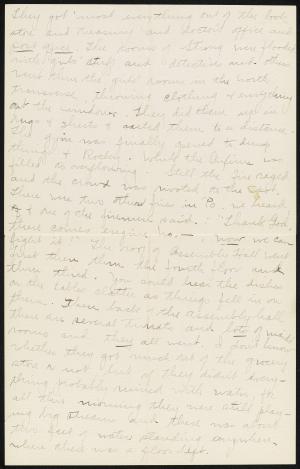 They got most everything out of the book
store and Treasury and Doctors office and
post office. The rooms of Strong were flooded
with girls' stuff and detectives and others
were then the girls' rooms in the north
transverse, throwing clothing & everything
out the windows. They did them up in
rugs & sheets & carted them to a distance.
The gym was finally opened to dump
things & Rocky. While the Infirm. was
filled to overflowing. Still the fire raged
and the crowd was rooted to the spot.
There were two other fires in Po. we heard
& one of the firemen said "Thank God,
there comes engine no. — , now we can
fight it!" The roof of Assembly Hall went
first then thru the fourth floor and
then third. You could hear the dishes
on the tables clatter as things fell in on
them. There back of the Assembly hall
there are several and lots of maids'
rooms and they all went. I don't know
whether they got much out of the grocery
store or not but if they didn't every-
thing probably ruined with water, for
all this morning they were still play-
ing big streams and there was about
two feet of water standing anywhere
where there was a floor left.